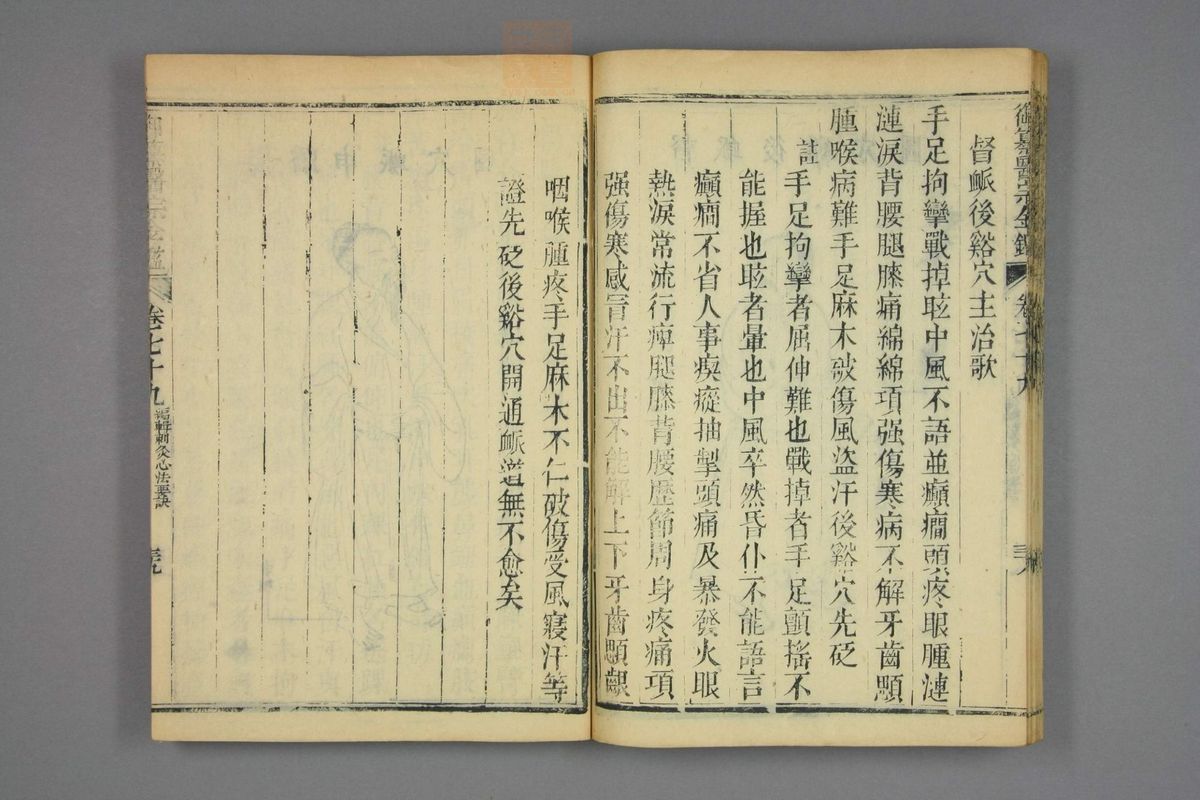 御纂醫宗金鑑
督脈後谿穴主治歌
手足拘攣戰掉眩中風不語並癲癇頭疼眼腫漣
漣淚背腰腿膝痛綿綿項强傷寒病不解牙齒顋
腫喉病難手足麻木破傷風盜汗後谿穴先砭
註手足拘攣者屈伸難也戰掉者手足顫搖不
能握也眩者暈也中風卒然昏仆不能語言
癲癇不省人事瘈瘲抽掣頭痛及暴發火眼
熱淚常流行痺腿膝背腰歷節周身疼痛項
强傷寒感冒汗不出不能解上下牙齒顋齦
咽喉腫疼手足麻木不仁破傷受風寢汗等
證先砭後谿穴開通脈道無不愈矣
御纂醫宗金鑑
卷七十九
編輯刺灸心法要訣
三九